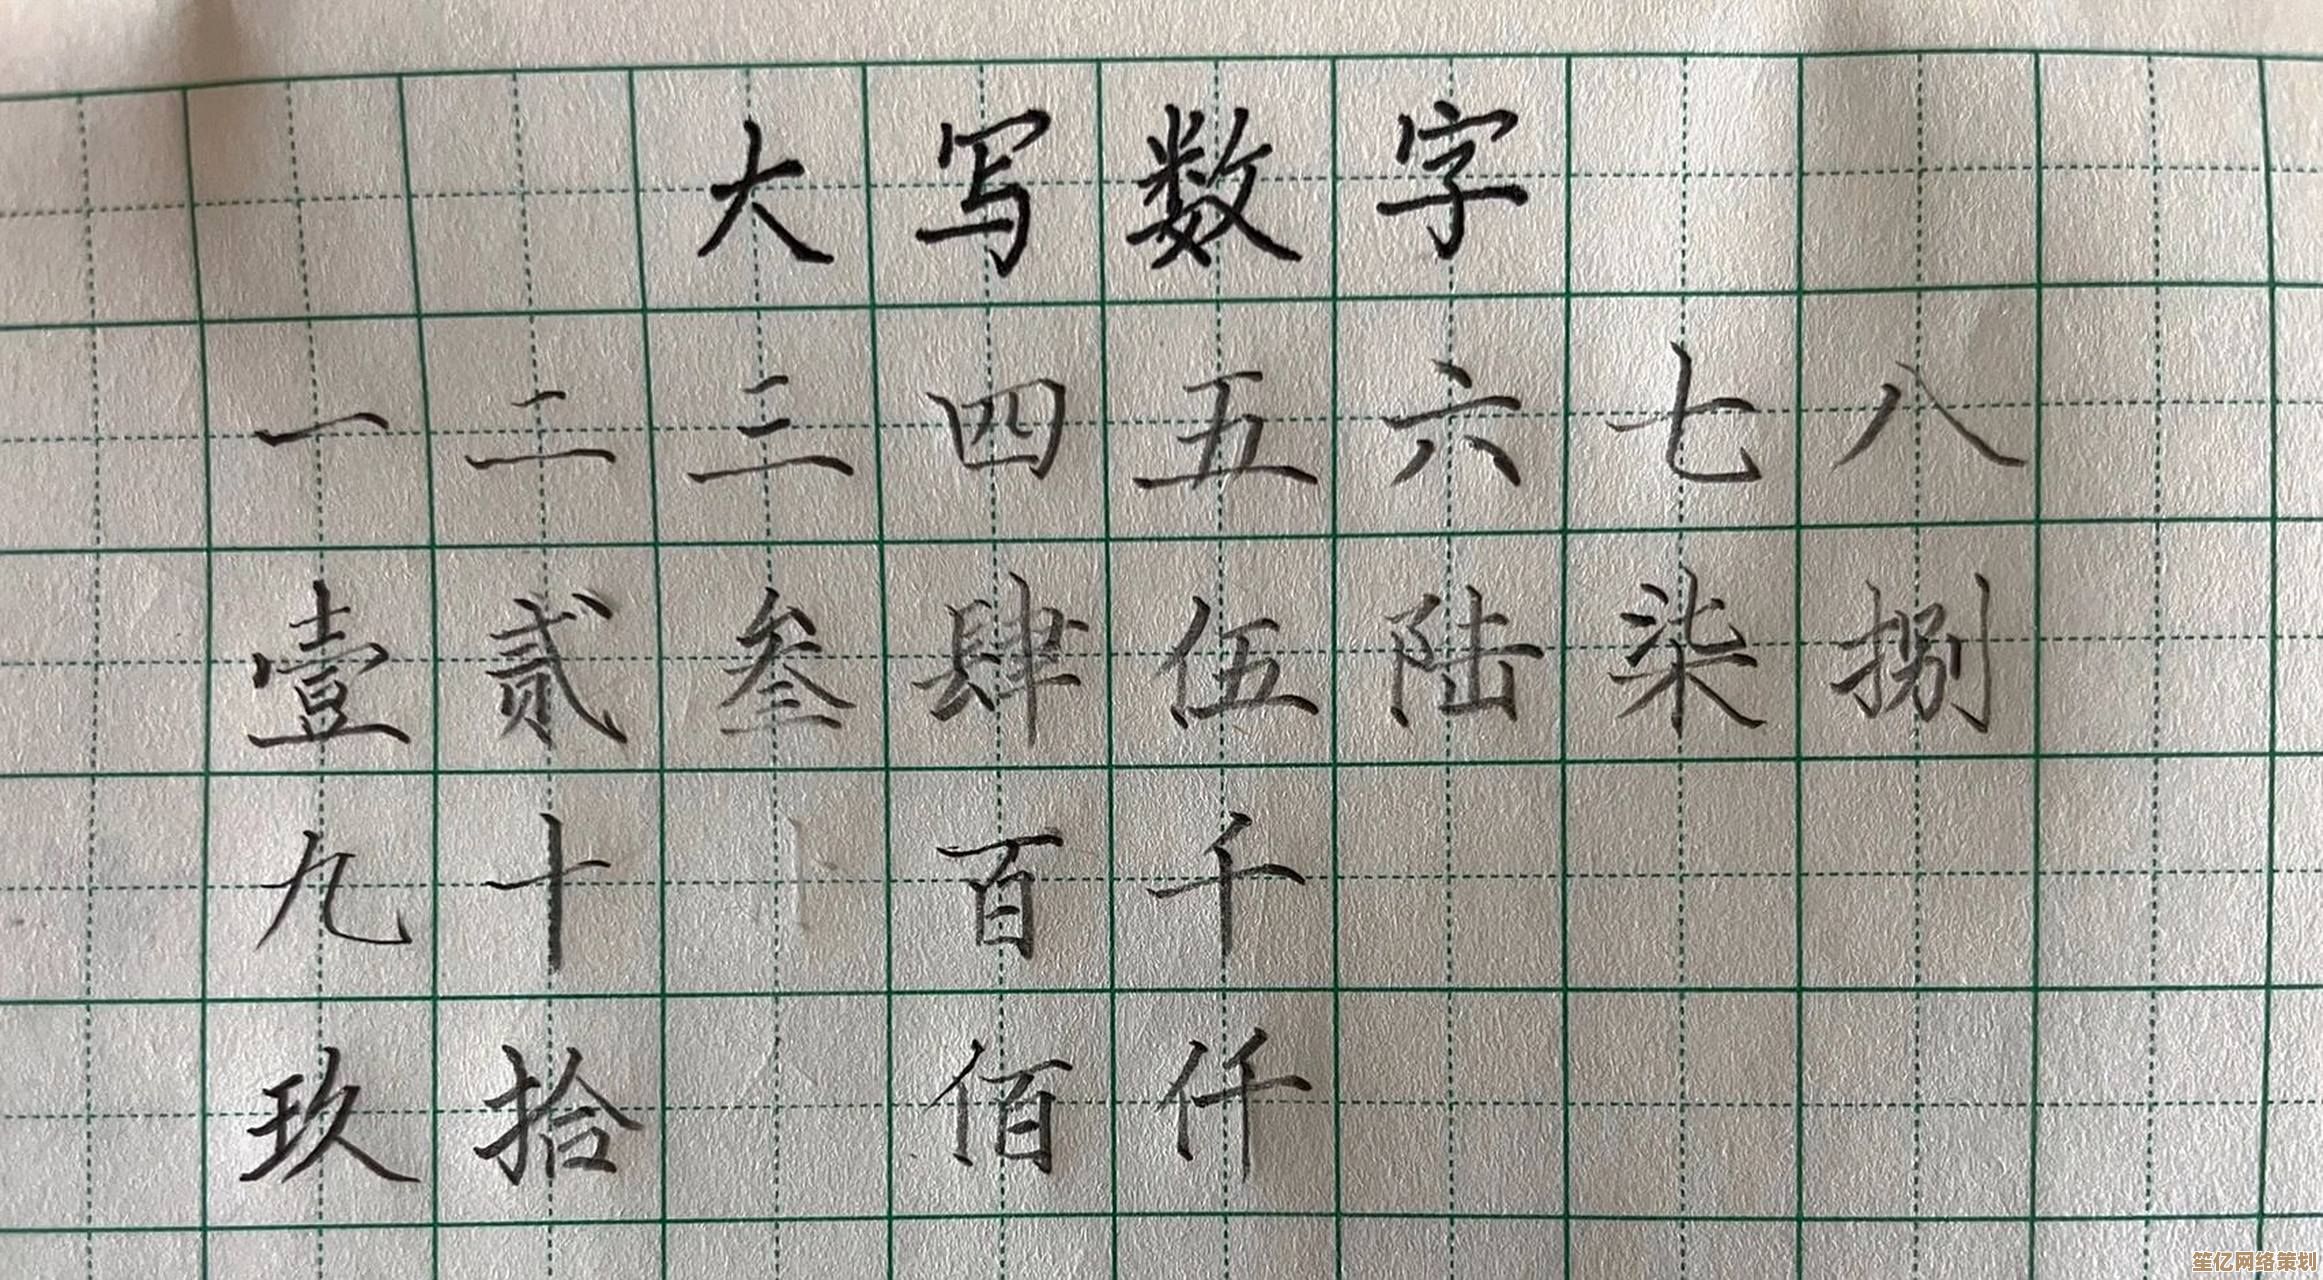 大写数字
一二三四五六七八
壹贰叁肆伍陆柒捌
九十 百千
玖拾 佰仟
笙亿网络策划